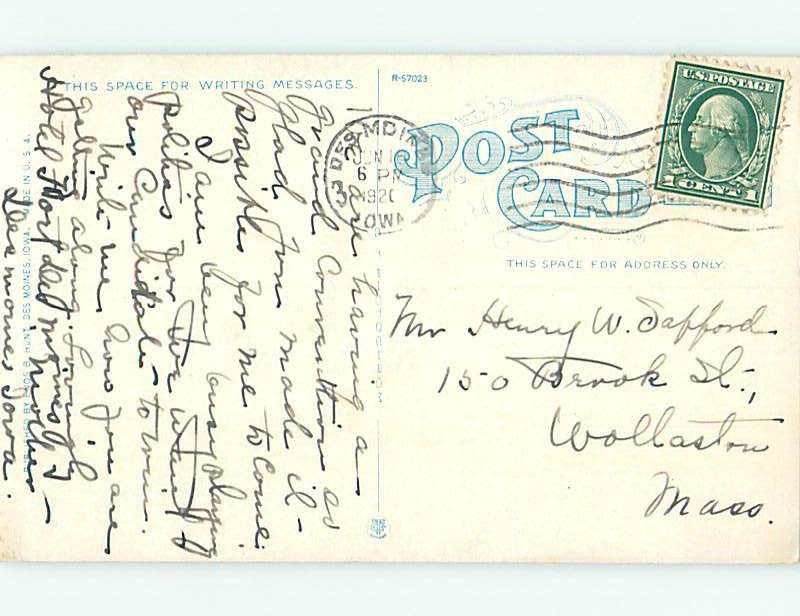 THIS SPACE FOR WRITING MESSAGES.
R-57023
POST
CARD
THIS SPACE FOR ADDRESS ONLY.
U.S. POSTAGE
1 CENT 1
DES MOINES
JUN 1
6 PM
1920
IOWA
We are having a
grand Convention so
glad you made it
possible for me to come.
I am very busy playing
politics for we want
our Candidate to win.
Write me how you are
getting along. Lovingly
Mother
Hotel Fort Des Moines
Des Moines Iowa.
PUBLISHED BY ENOS B. HUNT, DES MOINES, IOWA. MADE IN U.S.A.
Mr Henry W. Safford
150 Brook St.,
Wollaston
Mass.